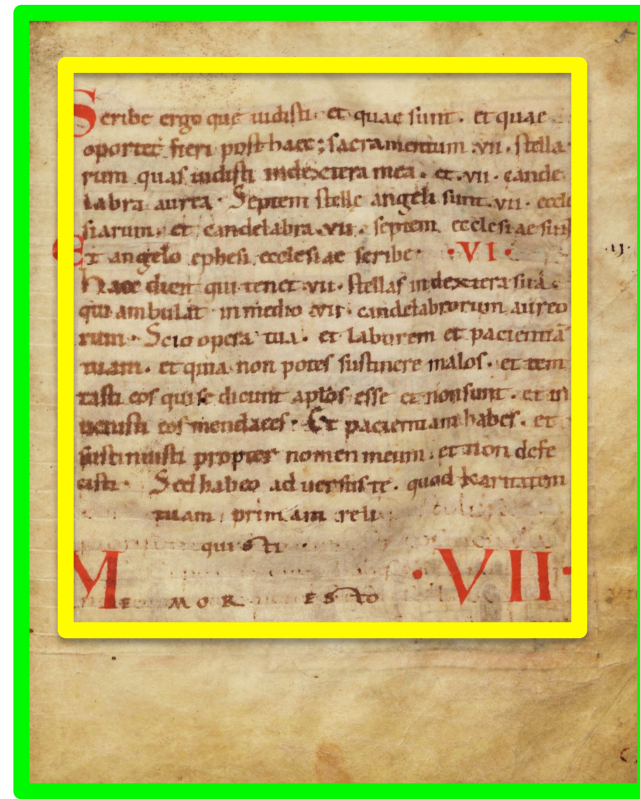 Scribe ergo que uidisti. et quae sunt. et quae
oportet fieri post haec; sacramentum .vii. stella
rum quas uidisti indextera mea. et .vii. cande
labra aurea. Septem stelle angeli sunt .vii. eccle
siarum. et candelabra .vii. septem ecclesiae sunt
Et angelo ephesi ecclesiae scribe. ·VI·
Haec dicit qui tenet .vii. stellas indextera sua.
qui ambulat inmedio .vii. candelabrorum aureo
rum. Scio opera tua. et laborem et pacientiā
tuam. et quia non potes sustinere malos. et tem
tasti eos qui se dicunt aplōs esse et nonsunt. et in
uenisti eos mendaces. Et pacientiam habes. et
sustinuisti propter nomen meum. et non defe
cisti. Sed habeo aduersus te. quod karitatem
tuam primam reli
quisti
MEMOR ESTO ·VII·